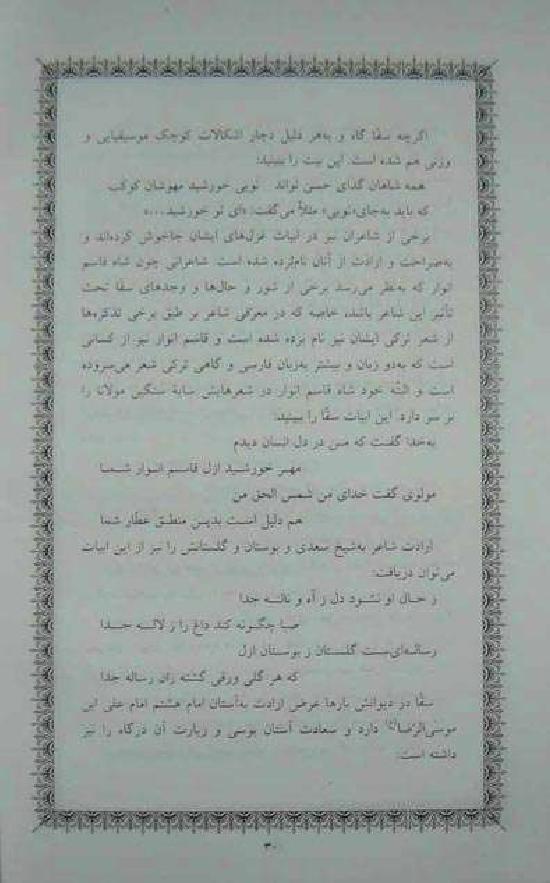 اگرچه سقا گاه و به‌هر دلیل دچار اشکالات کوچک موسیقیایی و
وزنی هم شده است. این بیت را ببینید:
همه شاهان گدای حسن تواند تویی خورشید مهوشان کوکب
که باید به‌جای«تویی» مثلاً می‌گفت: «ای تو خورشید...»
برخی از شاعران نیز در ابیات غزل‌های ایشان جاخوش کرده‌اند و
به‌صراحت و ارادت از آنان نام‌برده شده است. شاعرانی چون شاه قاسم
انوار که به‌نظر می‌رسد برخی از شور و حال‌ها و وجدهای سقا تحت
تأثیر این شاعر باشد، خاصه که در معرفی شاعر بر طبق برخی تذکره‌ها
از شعر ترکی ایشان نیز نام برده شده است و قاسم انوار نیز از کسانی
است که به‌دو زبان و بیشتر به‌زبان فارسی و گاهی ترکی شعر می‌سروده
است و البتّه خود شاه قاسم انوار در شعرهایش سایهٔ سنگین مولانا را
بر سر دارد. این ابیات سقّا را ببینید:
به‌خدا گفت که من در دل انسان دیدم
مهـر خورشـید ازل قاسـم انـوار شـما
مولوی گفت خدای من شمس الحق من
هم دلیل است بدیـن منطـق عطّار شما
ارادت شاعر به‌شیخ سعدی و بوستان و گلستانش را نیز از این ابیات
می‌توان دریافت:
ز خـال او نشـود دل ز آه و نالـه جدا
صبا چگـونه کند داغ را ز لالـه جـدا
رساله‌ای‌سـت گلسـتان ز بوستـان ازل
که هر گلی ورقی گشته زان رساله جدا
سقّا در دیوانش بارها عرض ارادت به‌آستان امام هشتم امام علی ابن
موسی‌الرّضا(ع) دارد و سعادت آستان بوسی و زیارت آن درگاه را نیز
داشته است:
۳۰